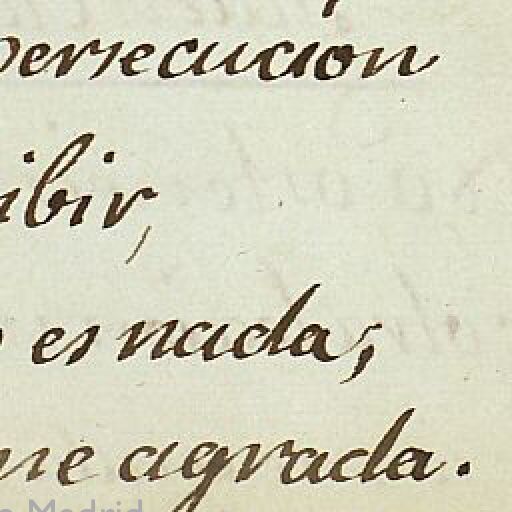 persecucion
ibir,
es nada;
me agrada.
Madrid